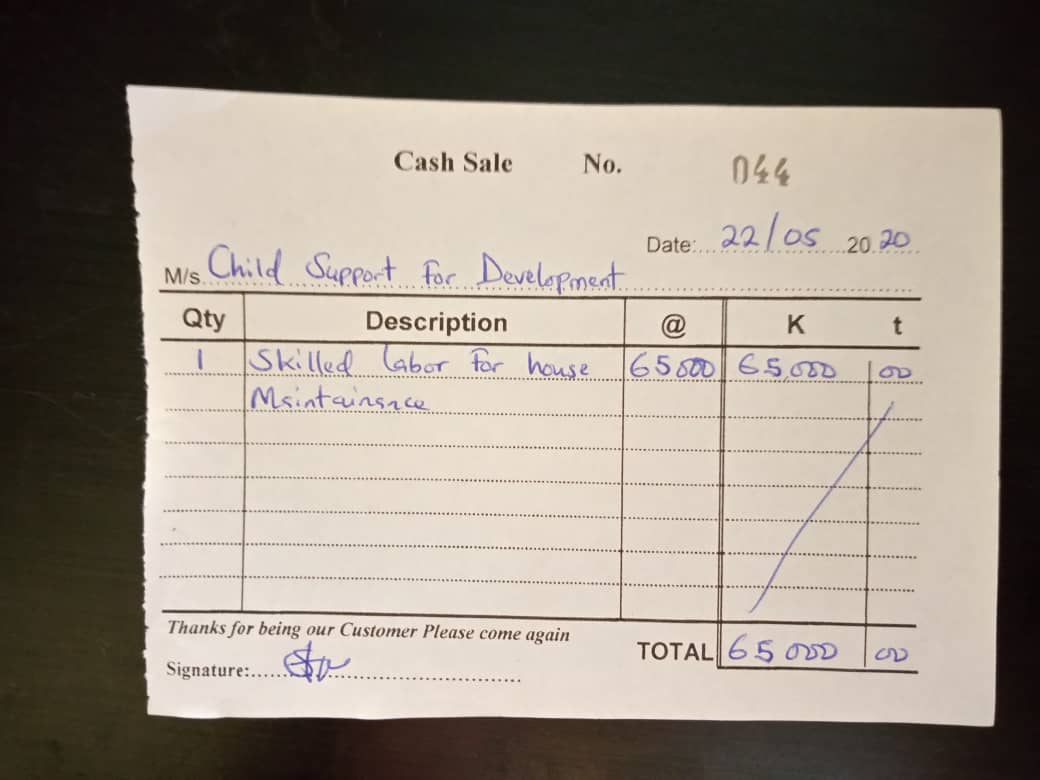 Cash Sale No. 044
Date:....22/05....20.20..
M/s Child Support for Development
Qty Description @ K t
1 Skilled labor for house 65000 65,000 00
Maintainance
Thanks for being our Customer Please come again
TOTAL 65000 00
Signature: